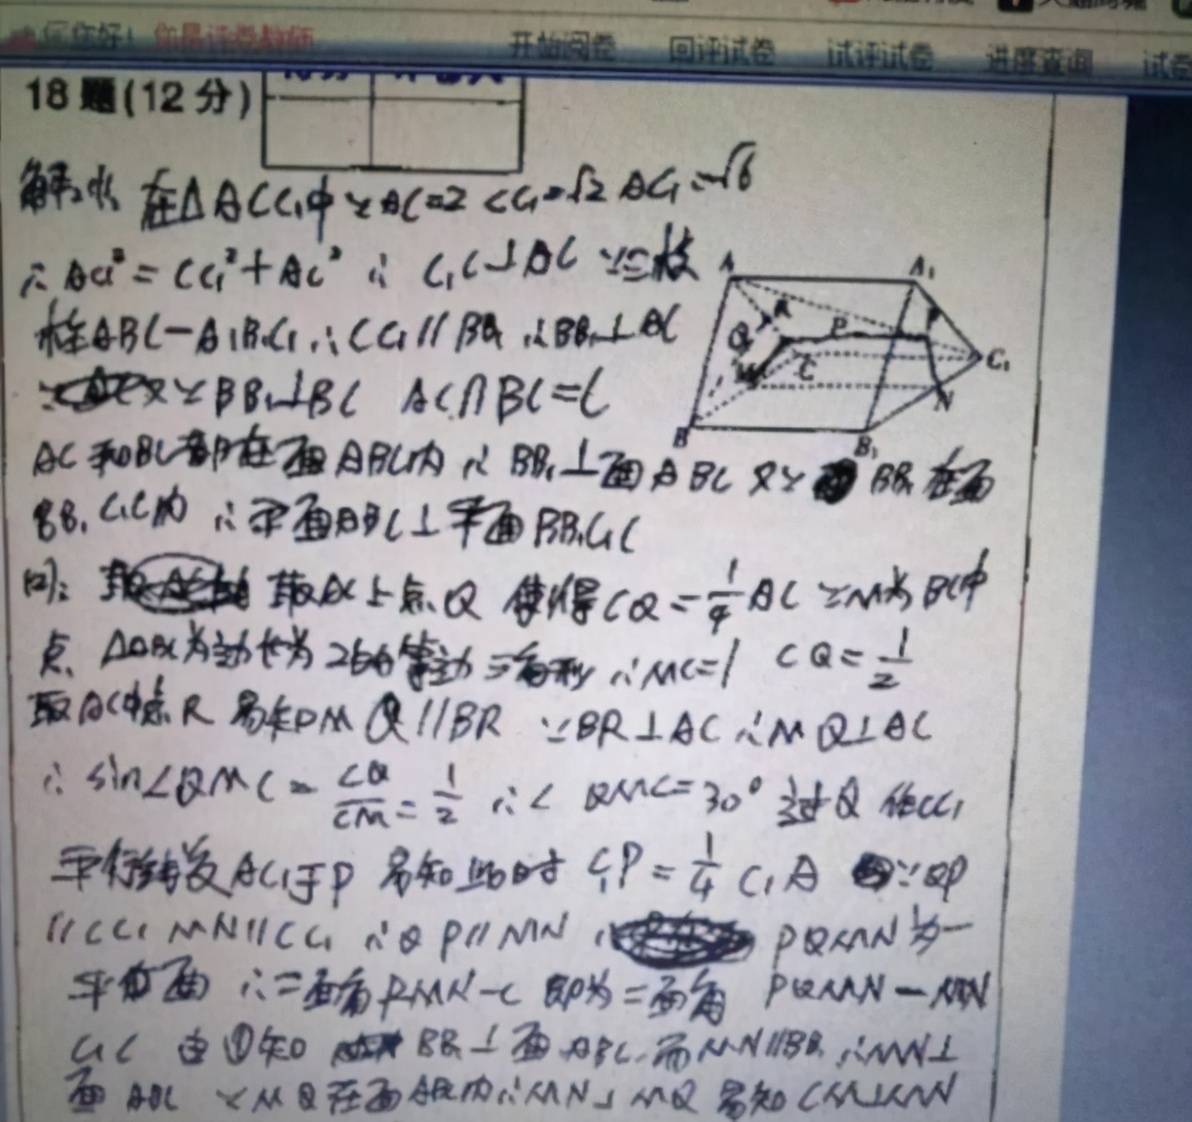 您好！ 你是评卷教师
开始阅卷 回评试卷 试评试卷 进度查询 试卷
18题(12分)
在△ACC₁中∵AC=2 CC₁=√2 AC₁=√6
∴AC₁²=CC₁²+AC² ∴C₁C⊥AC ∵三棱
柱ABC-A₁B₁C₁∴CC₁//BB₁∴BB₁⊥AC
又∵BB₁⊥BC AC∩BC=C
AC和BC都在面ABC内∴BB₁⊥面ABC 又∵BB₁在面
BB₁C₁C内 ∴平面ABC⊥平面BB₁C₁C
取AC上点Q 使得CQ=1/4AC ∵M为BC中
点 △ABC为边长为2的等边三角形∴MC=1 CQ=1/2
取AC中点R 易知MQ//BR ∵BR⊥AC∴MQ⊥AC
∴sin∠QMC=CQ/CM=1/2 ∴∠QMC=30° 过Q作CC₁
平行线交AC₁于P 易知此时C₁P=1/4C₁A ∵QP
//CC₁ MN//CC₁∴QP//MN PQMN为一
平面 ∴二面角PMN-C即为二面角PQMN-MN
C₁C 由①知 BB₁⊥面ABC 而MN//BB₁∴MN⊥
面ABC ∵MQ在面ABC内∴MN⊥MQ 易知CM⊥MN
A A₁ R Q P C C₁ M N B B₁